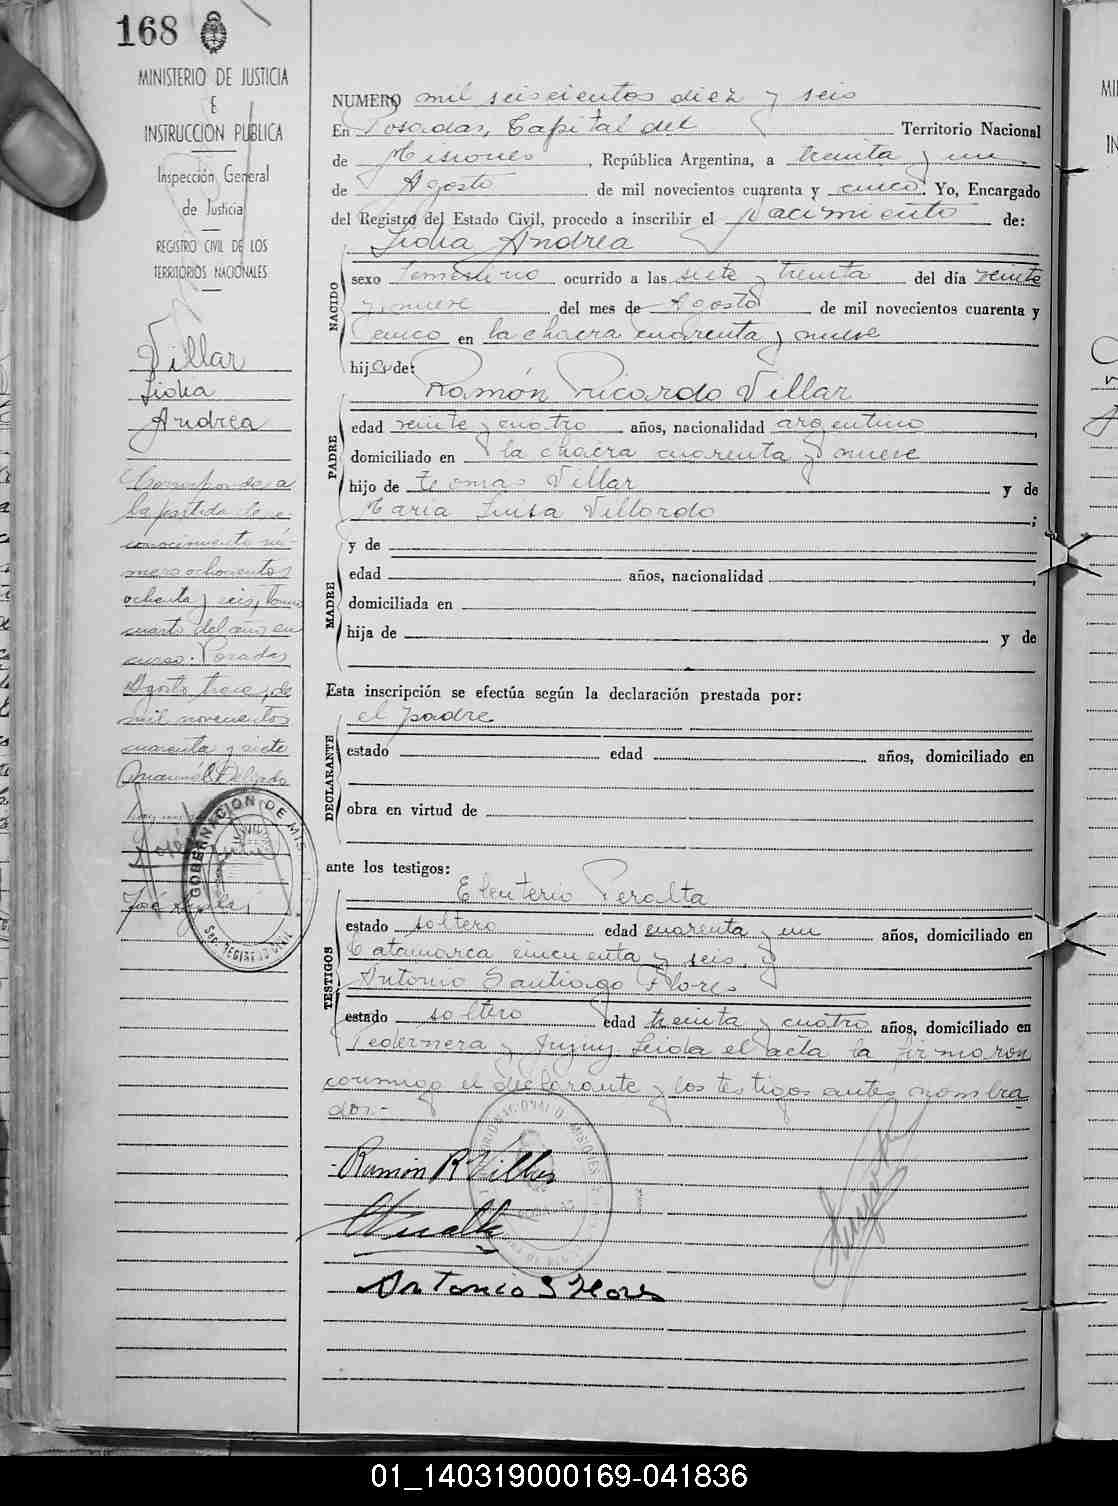 168
MINISTERIO DE JUSTICIA
E
INSTRUCCION PUBLICA
Inspección General
de Justicia
REGISTRO CIVIL DE LOS
TERRITORIOS NACIONALES
Villar
Lidia
Andrea
Corresponde a
la partida de re-
conocimiento nú-
mero ochocientos
ochenta y seis, tomo
cuarto del año en
curso. Posadas
Agosto trece de
mil novecientos
cuarenta y siete
José
GOBERNACION DE MIS
REGISTRO CIVIL
NUMERO mil seiscientos diez y seis
En Posadas, Capital del Territorio Nacional
de Misiones, República Argentina, a treinta y un
de Agosto de mil novecientos cuarenta y cinco. Yo, Encargado
del Registro del Estado Civil, procedo a inscribir el nacimiento de:
Lidia Andrea
NACIDO
sexo femenino ocurrido a las siete y treinta del día veinte
y nueve del mes de Agosto de mil novecientos cuarenta y
cinco en la chacra cuarenta y nueve
hija de:
Ramón Ricardo Villar
PADRE
edad veinte y cuatro años, nacionalidad argentino,
domiciliado en la chacra cuarenta y nueve
hijo de Tomas Villar y de
María Luisa Villordo;
y de
MADRE
edad años, nacionalidad,
domiciliada en
hija de y de
Esta inscripción se efectúa según la declaración prestada por:
el padre
DECLARANTE
estado edad años, domiciliado en
obra en virtud de
ante los testigos:
Eleuterio Peralta
TESTIGOS
estado soltero edad cuarenta y un años, domiciliado en
Catamarca cincuenta y seis, y
Antonio Santiago Flores
estado soltero edad treinta y cuatro años, domiciliado en
Pedernera y Jujuy. Leída el acta la firmaron
conmigo el declarante y los testigos antes nombra
dos.-
Ramón R Villar
Antonio S Flores
01_140319000169-041836